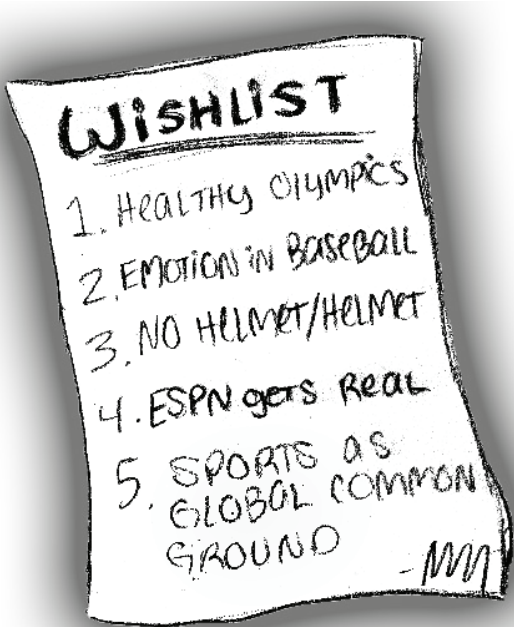 WiSHLiST
1. HeaLTHy OlyMPics
2. EMOTION iN BaseBaLL
3. NO HeLMeT/HeLMeT
4. ESPN geTs ReaL
5. SPORTS aS
GLOBaL COMMON
GROUND